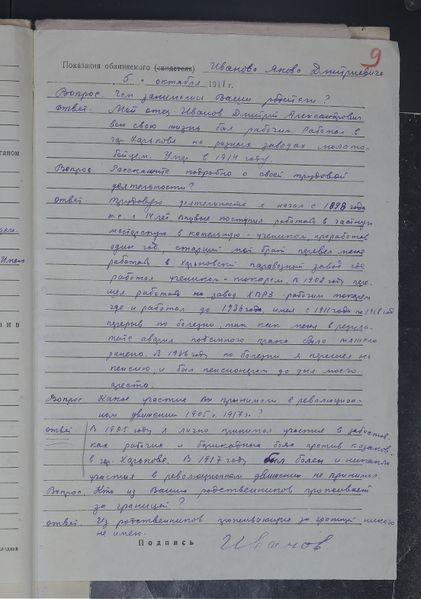 9
Показания обвиняемого (свидетеля) Иванова Якова Дмитриевича
5 октября 1941 г.
Вопрос. Чем занимались Ваши родители?
Ответ. Мой отец Иванов Дмитрий Александрович
всю свою жизнь был рабочим работал в
гор. Харькове на разных заводах молото-
бойцем. Умер в 1914 году.
Вопрос Расскажите подробно о своей трудовой
деятельности?
ответ Трудовую деятельность я начал с 1898 года
т.е. с 14 лет впервые поступил работать в частную
мастерскую учеником, проработав
один год. старший мой брат перевел меня
работать в Харьковский паровозный завод где
работал учеником - токарем. В 1902 году пере-
шел работать на завод ХПРЗ рабочим токарем
где и работал до 1936 года, имел с 1911 года по 1918 год
перерыв по болезни, так как меня в резуль-
тате аварии крана было тяжело
ранено. В 1936 году по болезни я перешел на
пенсию, и был пенсионером до дня моего
ареста.
Вопрос Какое участие Вы принимали в революцион-
ном движении 1905 и 1917 г.?
ответ В 1905 году я лично принимал участие в забастов-
ках рабочих и баррикадных боях против казаков
в гор. Харькове. В 1917 году был болен и никакого
участия в революционном движении не принимал.
Вопрос. Кто из Ваших родственников проживает
за границей?
ответ. Из родственников проживающих за границей никого
не имею.
Подпись Иванов.